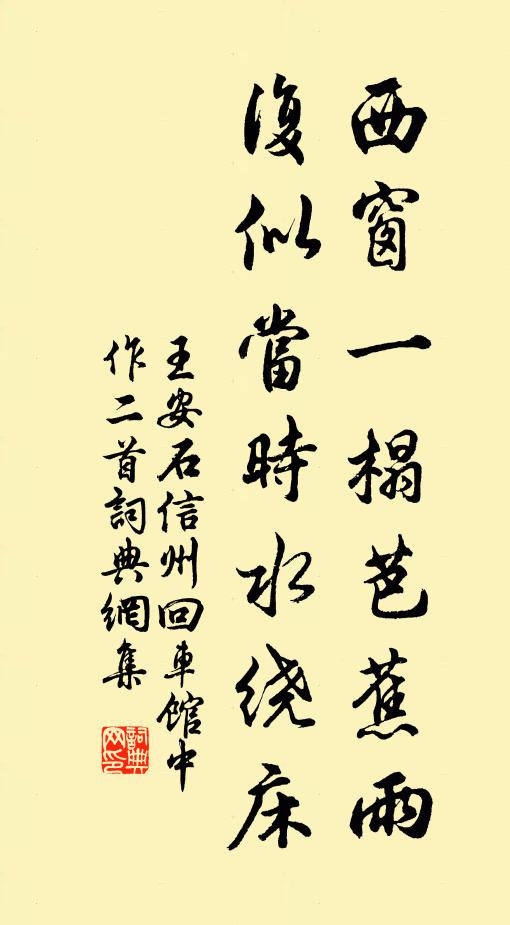 西窗一榻芭蕉雨
復似當時水绕床
王安石信州回車館中
作二首詞典網集
詞典
网印